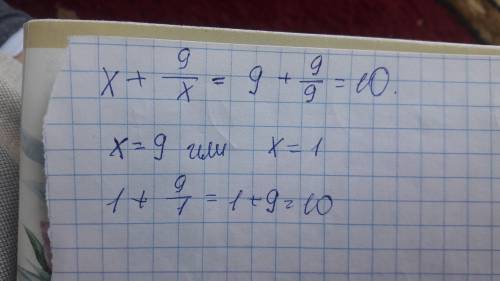 x + 9/x = 9 + 9/9 = 10.
x = 9 или x = 1
1 + 9/1 = 1 + 9 = 10